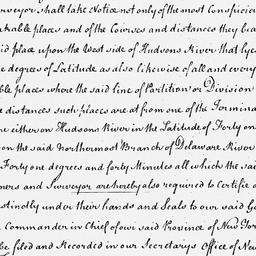 rveyor shall take Notice not only of the most Conspicio
rkable places and of the Courses and distances they bea
id place upon the West side of Hudsons River that lyes
e degrees of Latitude as also likewise of all and every
ble places where the said line of Partition or Division
e distances such places are at from one of the Termina
ne either on Hudsons River in the Latitude of Forty on
on the said Northermost Branch of Delaware River
Forty one degrees and forty Minutes all which the sai
ners and Surveyor are hereby also required to Certifie a
stinctly under their hands and Seals to our said Go
Commander in Chief of our said Province of New Yor
be filed and Recorded in our Secretarys Office of New